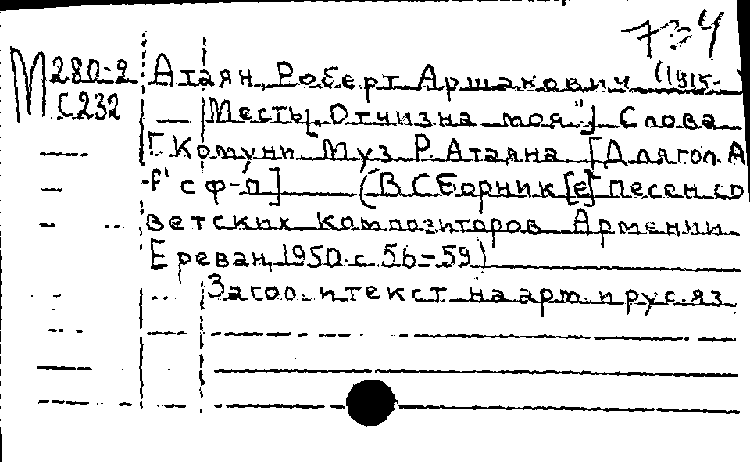 734
М 280-2 Атаян, Роберт Аршакович (1915-
С232 — Месть [„Отчизна моя"] Слова
Г. Комуни Муз Р. Атаяна [Для гол. А
-f' с ф-п] (В Сборник[е] песен со
ветских композиторов Армении
Ереван, 1950. с. 56-59)
Загол. и текст на арм. и рус. яз.